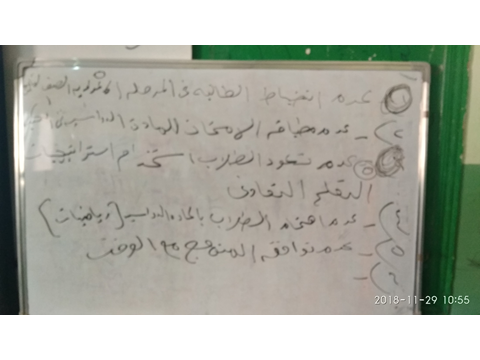 ١- عدم انضباط الطالب في المرحلة الثانوية الصف
٢- عدم مطابقة الامتحان للمادة الدراسية
٣- عدم تعود الطلاب استخدام استراتيجيات
التعلم التعاوني
٤- عدم اهتمام الطلاب بالمادة الدراسية (رياضيات)
٥- عدم توافق المنهج مع الوقت
٦-
2018-11-29 10:55